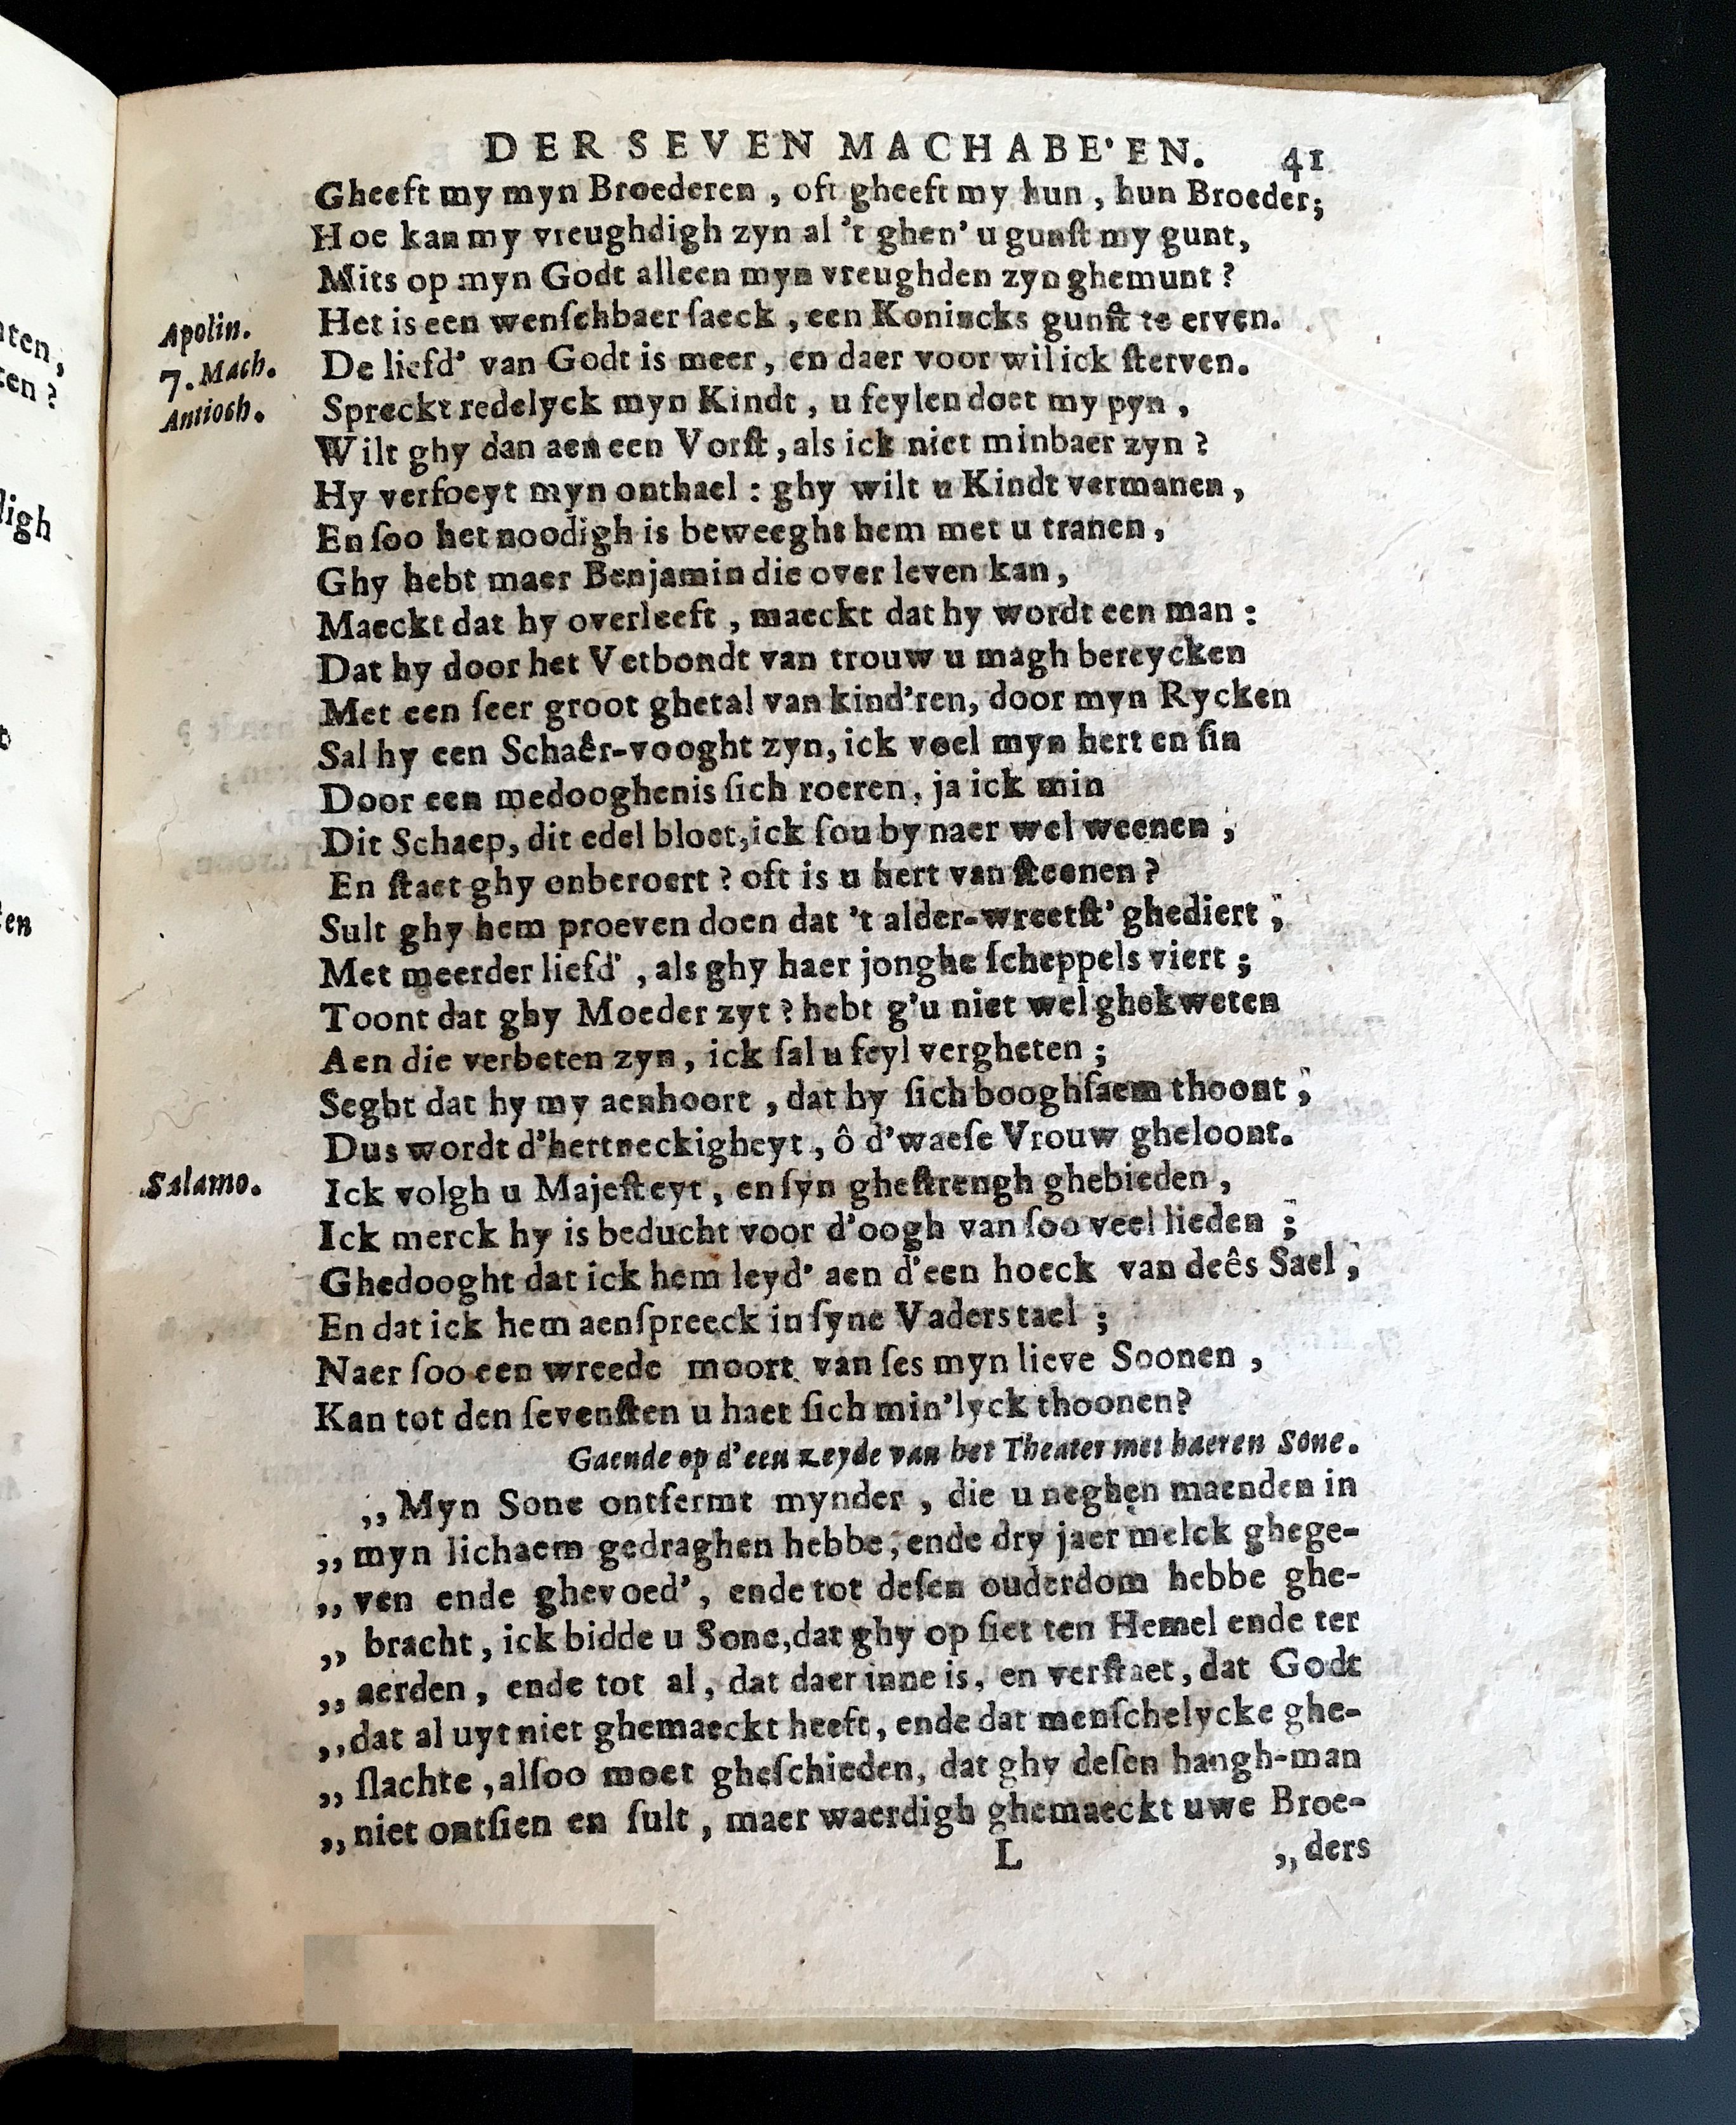 DER SEVEN MACHABE'EN. 41
Gheeft my myn Broederen , oft gheeft my hun , hun Broeder;
Hoe kan my vreughdigh zyn al 't ghen' u gunſt my gunt,
Mits op myn Godt alleen myn vreughden zyn ghemunt ?
Apolin. Het is een wenſchbaer ſaeck , een Konincks gunſt te erven.
7. Mach. De liefd' van Godt is meer, en daer voor wil ick ſterven.
Antioch. Spreckt redelyck myn Kindt , u feylen doet my pyn ,
Wilt ghy dan aen een Vorſt, als ick niet minbaer zyn ?
Hy verfoeyt myn onthael : ghy wilt u Kindt vermanen ,
En ſoo het noodigh is beweeght hem met u tranen ,
Ghy hebt maer Benjamin die over leven kan ,
Maeckt dat hy overleeft , maeckt dat hy wordt een man :
Dat hy door het Vetbondt van trouw u magh bereycken
Met een ſeer groot ghetal van kind'ren, door myn Rycken
Sal hy een Schaêr-vooght zyn, ick voel myn hert en ſin
Door een medooghenis ſich roeren, ja ick min
Dit Schaep, dit edel bloet, ick ſou by naer wel weenen ,
En ſtaet ghy onberoert ? oft is u hert van ſteenen ?
Sult ghy hem proeven doen dat 't alder-wreetſt' ghediert ,
Met meerder liefd' , als ghy haer jonghe ſcheppels viert ;
Toont dat ghy Moeder zyt ? hebt g'u niet wel ghekweten
Aen die verbeten zyn, ick ſal u feyl vergheten ;
Seght dat hy my aenhoort , dat hy ſich booghſaem thoont ,
Dus wordt d'hertneckigheyt , ô d'waeſe Vrouw gheloont.
Salamo. Ick volgh u Majeſteyt , en ſyn gheſtrengh ghebieden ,
Ick merck hy is beducht voor d'oogh van ſoo veel lieden ;
Ghedooght dat ick hem leyd' aen d'een hoeck van deês Sael ,
En dat ick hem aenſpreeck in ſyne Vaders tael ;
Naer ſoo een wreede moort van ſes myn lieve Soonen ,
Kan tot den ſevenſten u haet ſich min'lyck thoonen?
Gaende op d'een zeyde van het Theater met haeren Sone.
,, Myn Sone ontfermt mynder , die u neghen maenden in
,, myn lichaem gedraghen hebbe, ende dry jaer melck ghege-
,, ven ende ghevoed', ende tot deſen ouderdom hebbe ghe-
,, bracht , ick bidde u Sone, dat ghy op ſiet ten Hemel ende ter
,, aerden , ende tot al , dat daer inne is, en verſtaet, dat Godt
,, dat al uyt niet ghemaeckt heeft, ende dat menſchelycke ghe-
,, ſlachte , alſoo moet gheſchieden, dat ghy deſen hangh-man
,, niet ontſien en ſult , maer waerdigh ghemaeckt uwe Broe-
L ,, ders
nten,
ten ?
ligh
t
ten